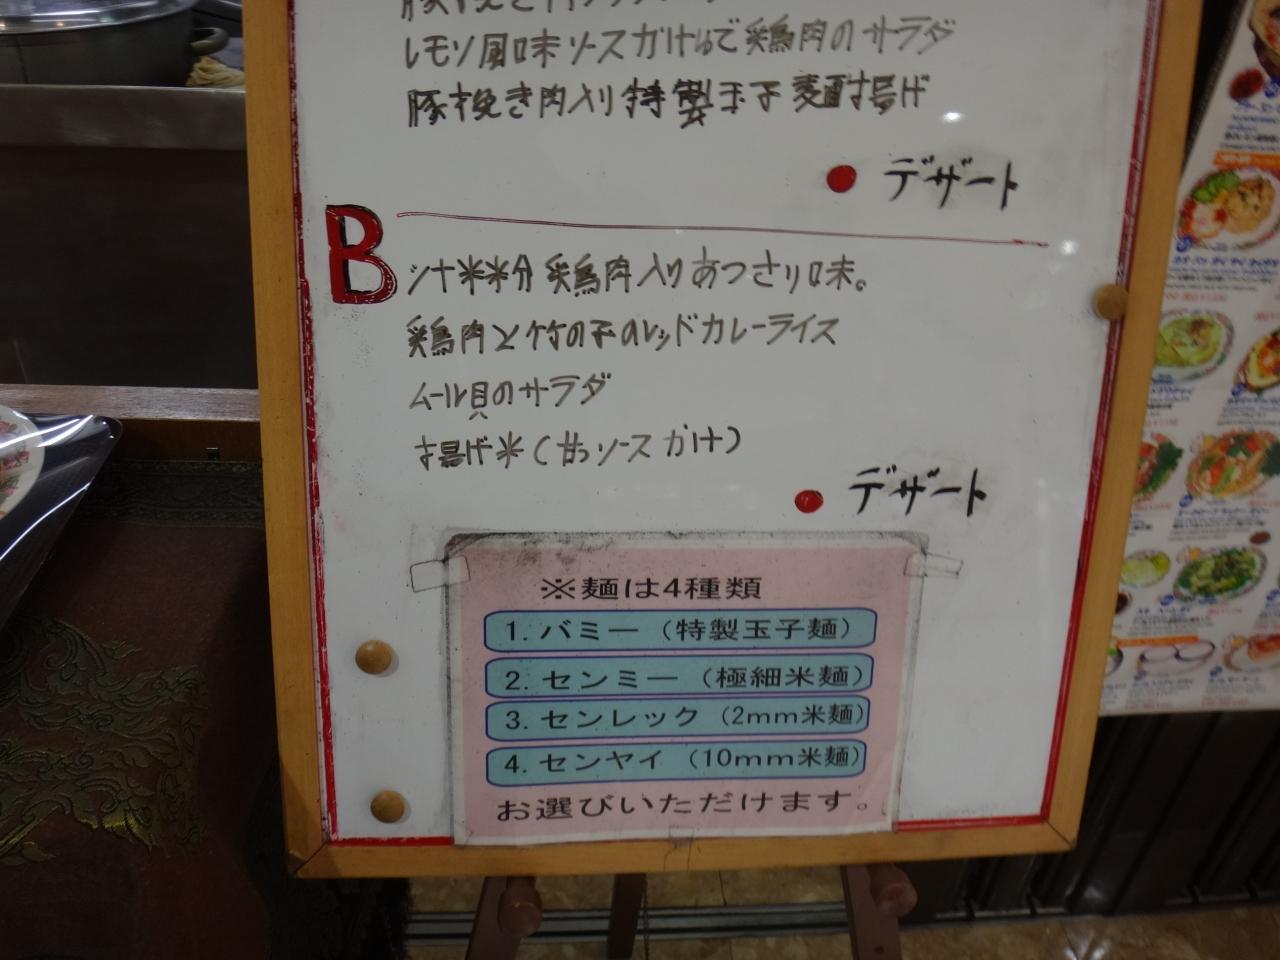 レモン風味ソースがけゆで鶏肉のサラダ
豚挽き肉入り特製玉子麺揚げ
● デザート
B
汁米粉 鶏肉入りあっさり味。
鶏肉と竹の子のレッドカレーライス
ムール貝のサラダ
揚げ米(甘ソースかけ)
● デザート
※麺は4種類
1. バミー（特製玉子麺）
2. センミー（極細米麺）
3. センレック（2mm米麺）
4. センヤイ（10mm米麺）
お選びいただけます。